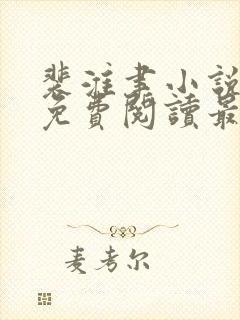 裴淮書小說
免費閱讀最
麦考尔